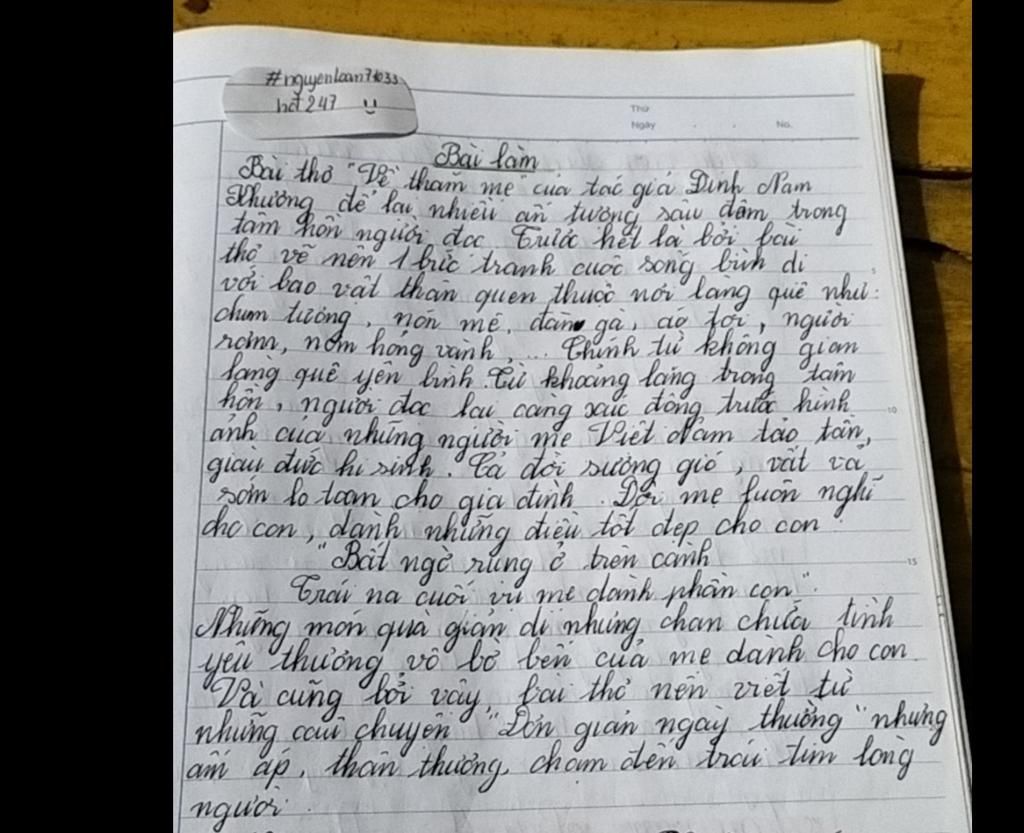 #nguyenloan7633
hđt 247
Thứ
Ngày
No.
Bài làm
Bài thơ "Về thăm mẹ" của tác giả Đinh Nam
Khương để lại nhiều ấn tượng sâu đậm trong
tâm hồn người đọc. Trước hết là bởi bài
thơ vẽ nên 1 bức tranh cuộc sống bình dị
với bao vật thân quen thuộc nơi làng quê như:
chum tương, nón mê, đàn gà, áo tơi, người
rơm, nơm hỏng vành, ... Chính từ không gian
làng quê yên bình. Từ khoảng lặng trong tâm
hồn, người đọc lại càng xúc động trước hình
ảnh của những người mẹ Việt Nam tảo tần,
giàu đức hi sinh. Cả đời sương gió, vất vả
sớm lo toan cho gia đình. Đời mẹ luôn nghĩ
cho con, dành những điều tốt đẹp cho con:
"Bất ngờ rụng ở trên cành
Trái na cuối vụ mẹ dành phần con".
Những món quà giản dị nhưng chan chứa tình
yêu thương vô bờ bến của mẹ dành cho con.
Và cũng bởi vậy, bài thơ nên viết từ
những câu chuyện "Đơn giản ngày thường" nhưng
ấm áp, thân thương, chạm đến trái tim lòng
người.
5
10
15